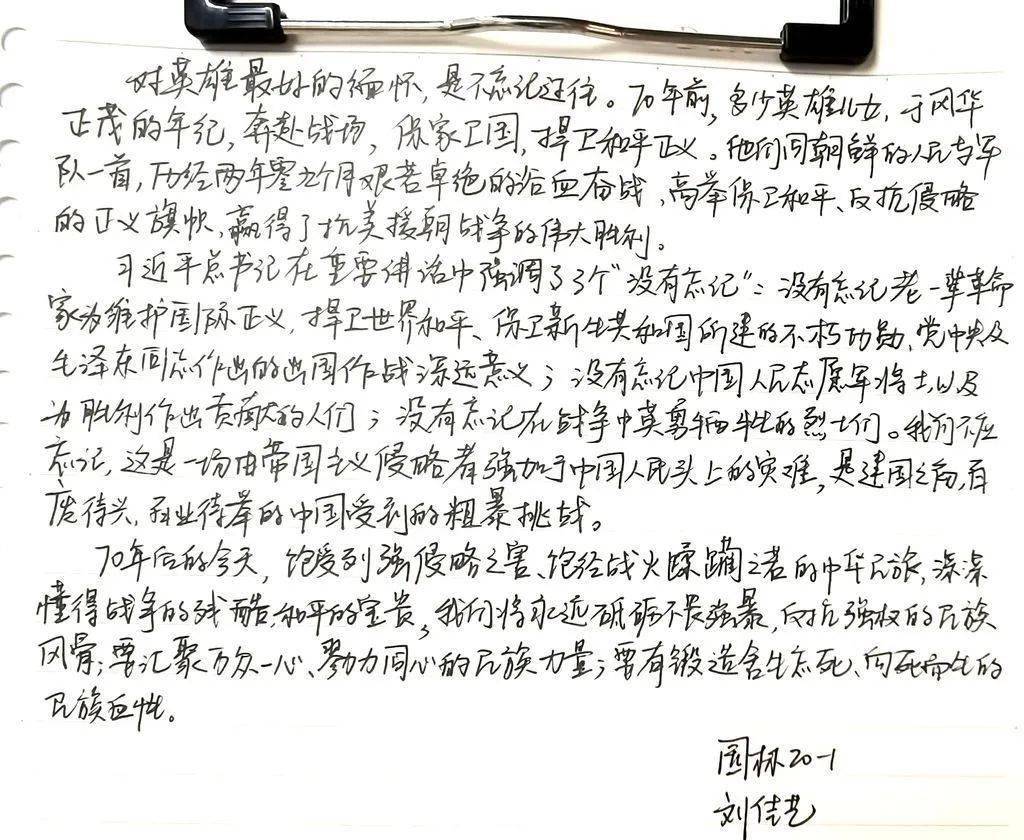 对英雄最好的缅怀，是不忘记过往。70年前，多少英雄儿女，于风华
正茂的年纪，奔赴战场，保家卫国，捍卫和平正义。他们同朝鲜的人民与军
队一首，历经两年零九个月艰苦卓绝的浴血奋战，高举保卫和平、反抗侵略
的正义旗帜，赢得了抗美援朝战争的伟大胜利。
习近平总书记在重要讲话中强调了3个“没有忘记”：没有忘记老一辈革命
家为维护国际正义，捍卫世界和平、保卫新生共和国所建的不朽功勋，党中央及
毛泽东同志作出的出国作战深远意义；没有忘记中国人民志愿军将士，以及
为胜利作出贡献的人们；没有忘记在战争中英勇牺牲的烈士们。我们不应
忘记，这是一场由帝国主义侵略者强加于中国人民头上的灾难，是建国之后，百
废待兴，百业待举的中国受到的粗暴挑战。
70年后的今天，饱受列强侵略之害、饱经战火蹂躏之苦的中华民族，深深
懂得战争的残酷，和平的宝贵，我们将永远砥砺不畏强暴，反抗强权的民族
风骨；要汇聚万众一心、勠力同心的民族力量；要有锻造舍生忘死、向死而生的
民族血性。
园林20-1
刘佳艺